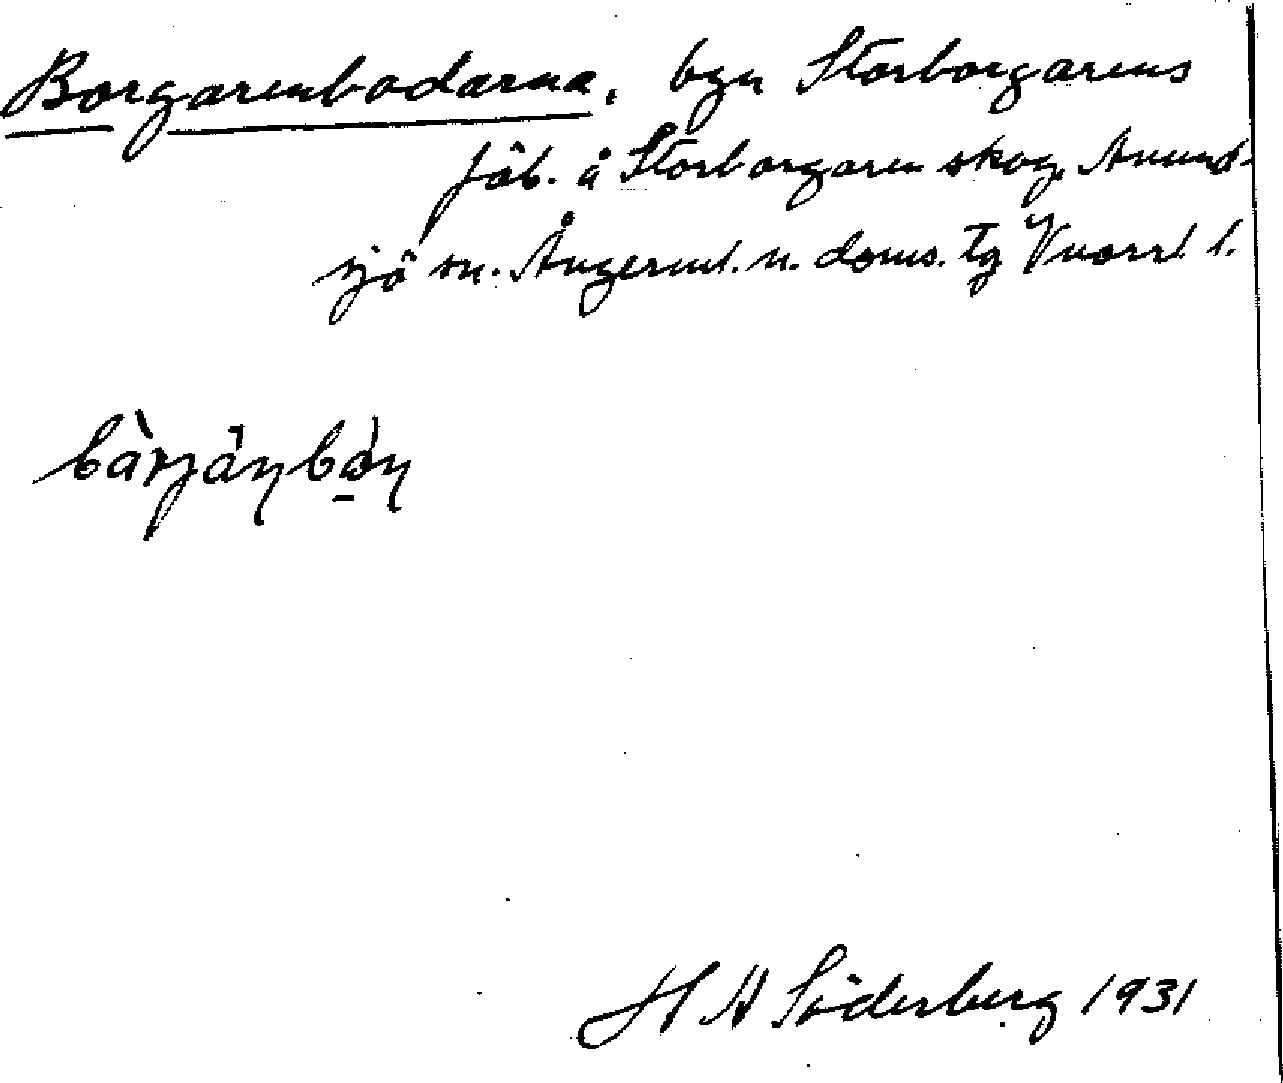 Borgarenbodarna, byn Storborgarens
fäb. å Storborgaren skog, Anund-
sjö sn. Ångerml. n. doms. tg Vnorrl. l.
H A Söderberg 1931